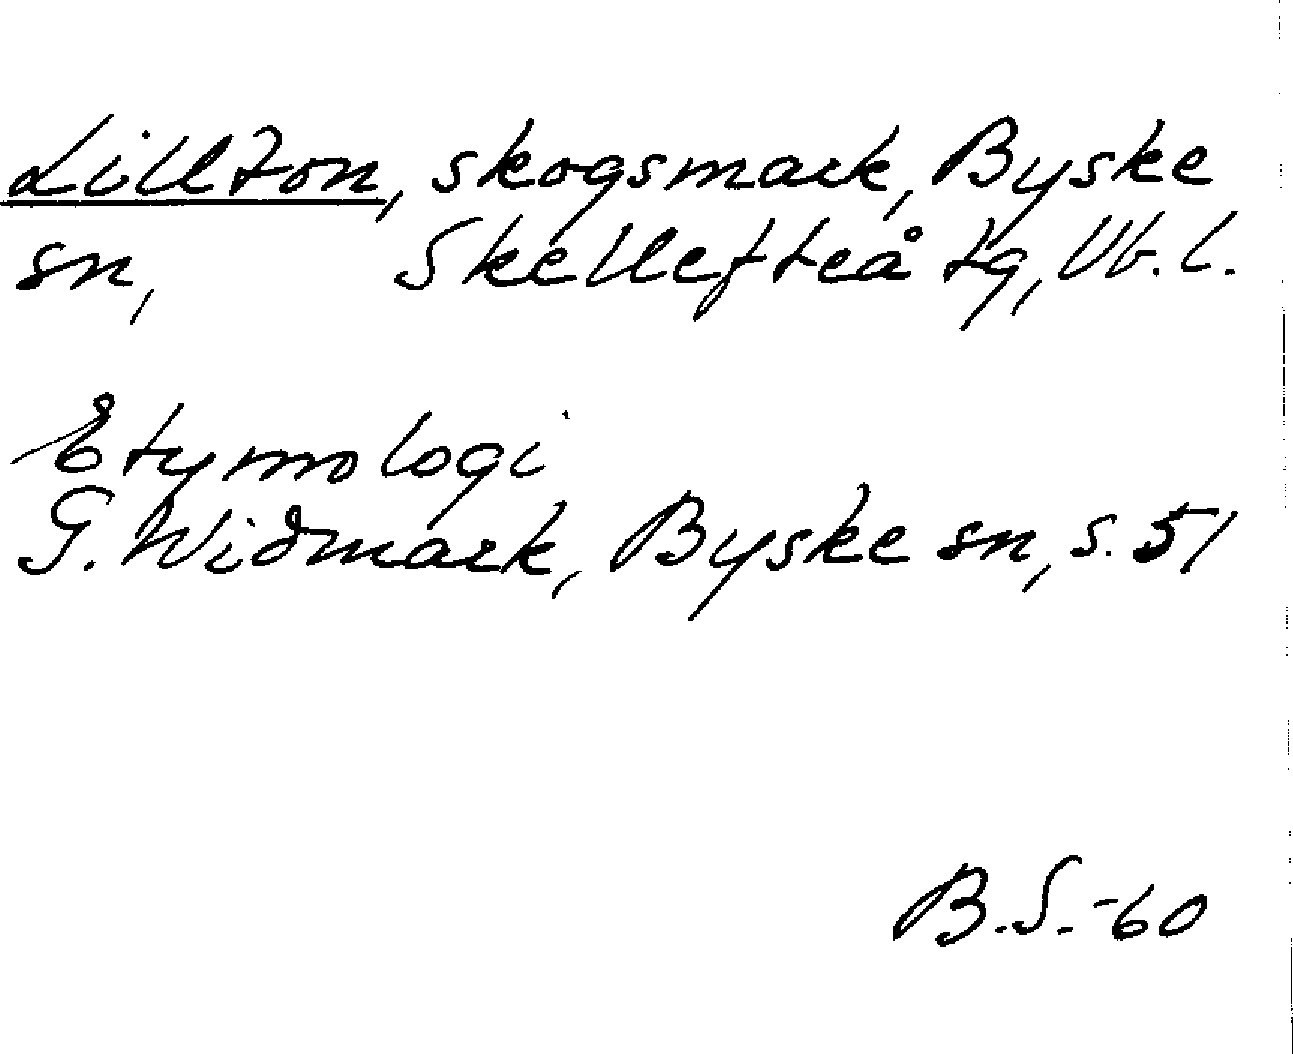 Lillton, skogsmark, Byske
sn, Skellefteå tg, Vb. l.
Etymologi
G. Widmark, Byske sn, s. 51
B.S.-60